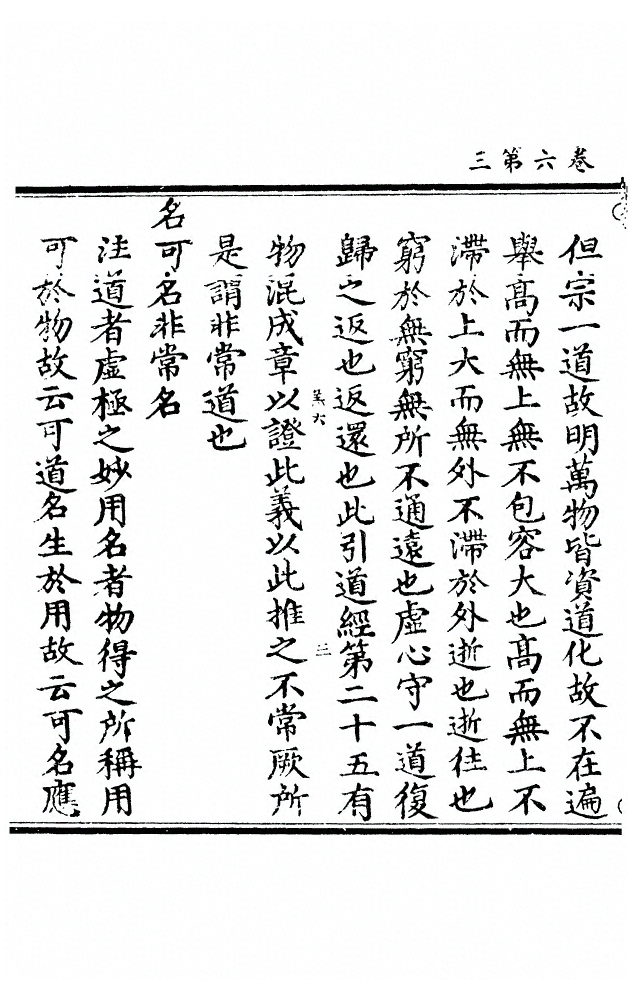 卷六第三
但宗一道故明萬物皆資道化故不在遍
舉高而無上無不包容大也高而無上不
滯於上大而無外不滯於外逝也逝往也
窮於無窮無所不通遠也虛心守一道復
歸之返也返還也此引道經第二十五有
羔六
三
物混成章以證此義以此推之不常厥所
是謂非常道也
名可名非常名
注道者虛極之妙用名者物得之所稱用
可於物故云可道名生於用故云可名應